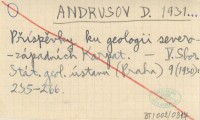 ANDRUSOV D. 1931...
Příspěvky ku geologii severo-
-západních Karpat. — V. Sbor.
Stát. geol. ústavu (Praha) 9 (1930):
235-266.